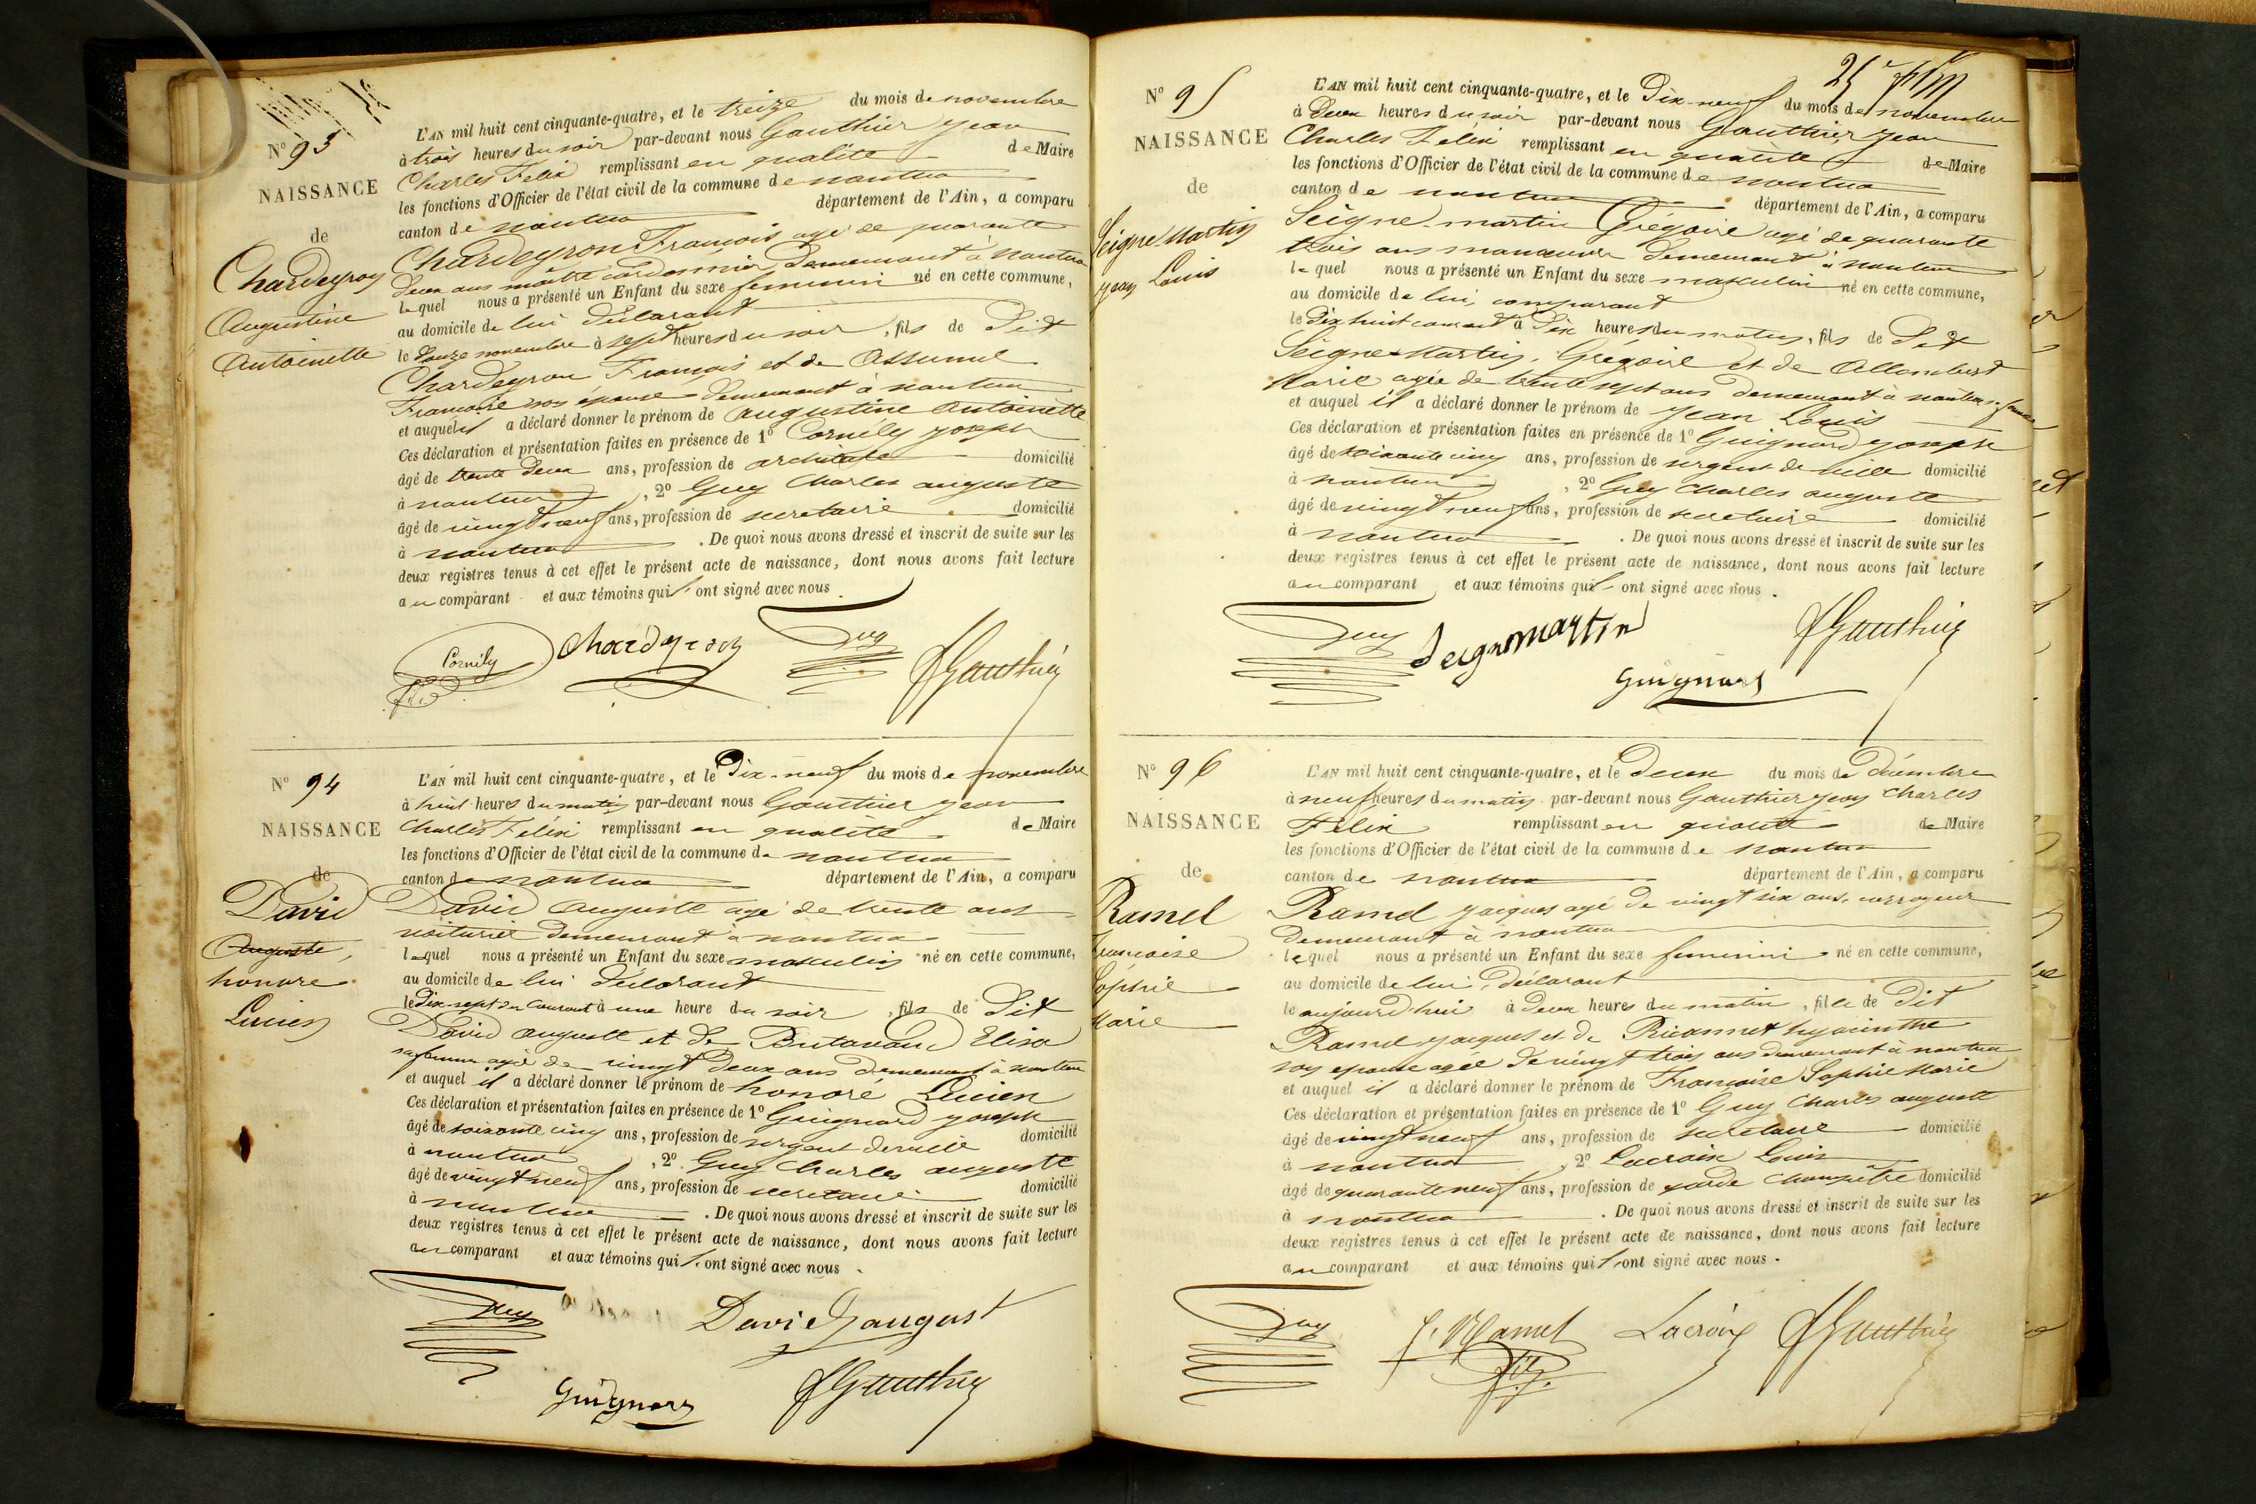 N° 93
NAISSANCE
de
Chardeyron
Augustine
Antoinette
L'AN mil huit cent cinquante-quatre, et le treize du mois de novembre
à trois heures du soir par-devant nous Gauthier Jean
Charles Felix remplissant en qualité de Maire
les fonctions d'Officier de l'état civil de la commune de nantua
canton de nantua département de l'Ain, a comparu
Chardeyron François agé de quarante
deux ans maître cordonnier demeurant à Nantua
lequel nous a présenté un Enfant du sexe feminin né en cette commune,
au domicile de lui déclarant
le douze novembre à sept heures du soir, fils de Dit
Chardeyron François et de
Françoise son épouse demeurant à nantua
et auquel il a déclaré donner le prénom de augustine antoinette
Ces déclaration et présentation faites en présence de 1° Cornily joseph
âgé de trente deux ans, profession de architecte domicilié
à nantua, 2° Guy Charles auguste
âgé de vingt neuf ans, profession de secretaire domicilié
à nantua. De quoi nous avons dressé et inscrit de suite sur les
deux registres tenus à cet effet le présent acte de naissance, dont nous avons fait lecture
au comparant et aux témoins qui ont signé avec nous.
Cornily Chardeyron Guy Gauthier
N° 94
NAISSANCE
de
David
Auguste,
honore
Lucien
L'AN mil huit cent cinquante-quatre, et le Dix-neuf du mois de novembre
à huit heures du matin par-devant nous Gauthier Jean
Charles Félix remplissant en qualité de Maire
les fonctions d'Officier de l'état civil de la commune de nantua
canton de nantua département de l'Ain, a comparu
David auguste agé de trente ans
voiturier demeurant à nantua
lequel nous a présenté un Enfant du sexe masculin né en cette commune,
au domicile de lui déclarant
le Dix sept du courant à une heure du soir, fils de Dit
David auguste et de Butavand Elisa
sa femme agée de vingt deux ans demeurant à nantua
et auquel il a déclaré donner le prénom de honoré Lucien
Ces déclaration et présentation faites en présence de 1° Guignard joseph
âgé de soixante cinq ans, profession de sergent de ville domicilié
à nantua, 2° Guy Charles auguste
âgé de vingt neuf ans, profession de secretaire domicilié
à nantua. De quoi nous avons dressé et inscrit de suite sur les
deux registres tenus à cet effet le présent acte de naissance, dont nous avons fait lecture
au comparant et aux témoins qui ont signé avec nous.
Guy David august
Guignard Gauthier
N° 95
NAISSANCE
de
Seigne Martin
Jean Louis
L'AN mil huit cent cinquante-quatre, et le Dix-neuf du mois de novembre
à Deux heures du soir par-devant nous Gauthier Jean
Charles Felix remplissant en qualité de Maire
les fonctions d'Officier de l'état civil de la commune de nantua
canton de nantua département de l'Ain, a comparu
Seigne-martin Grégoire agé de quarante
trois ans manœuvre demeurant à nantua
lequel nous a présenté un Enfant du sexe masculin né en cette commune,
au domicile de lui comparant
le Dix huit courant à Dix heures du matin, fils de Dit
Seigne-Martin, Grégoire et de Allombert
Marie agée de trente sept ans demeurant à nantua sa femme
et auquel il a déclaré donner le prénom de Jean Louis
Ces déclaration et présentation faites en présence de 1° Guignard joseph
âgé de soixante cinq ans, profession de sergent de ville domicilié
à nantua, 2° Guy Charles auguste
âgé de vingt neuf ans, profession de secretaire domicilié
à nantua. De quoi nous avons dressé et inscrit de suite sur les
deux registres tenus à cet effet le présent acte de naissance, dont nous avons fait lecture
au comparant et aux témoins qui ont signé avec nous.
Guy Seignemartin Gauthier
Guignard
N° 96
NAISSANCE
de
Ramel
Françoise
Sophie
Marie
L'AN mil huit cent cinquante-quatre, et le deux du mois de décembre
à neuf heures du matin par-devant nous Gauthier Jean Charles
Félix remplissant en qualité de Maire
les fonctions d'Officier de l'état civil de la commune de nantua
canton de nantua département de l'Ain, a comparu
Ramel jacques agé de vingt six ans, corroyeur
demeurant à nantua
lequel nous a présenté un Enfant du sexe feminin né en cette commune,
au domicile de lui, déclarant
le aujourd'hui à deux heures du matin, fille de Dit
Ramel jacques et de hyacinthe
son epouse agée de vingt trois ans demeurant à nantua
et auquel il a déclaré donner le prénom de Françoise Sophie Marie
Ces déclaration et présentation faites en présence de 1° Guy Charles auguste
âgé de vingt neuf ans, profession de secretaire domicilié
à nantua, 2° Lacroix Louis
âgé de quarante neuf ans, profession de garde champêtre domicilié
à nantua. De quoi nous avons dressé et inscrit de suite sur les
deux registres tenus à cet effet le présent acte de naissance, dont nous avons fait lecture
au comparant et aux témoins qui ont signé avec nous.
Guy J. Ramel Lacroix Gauthier